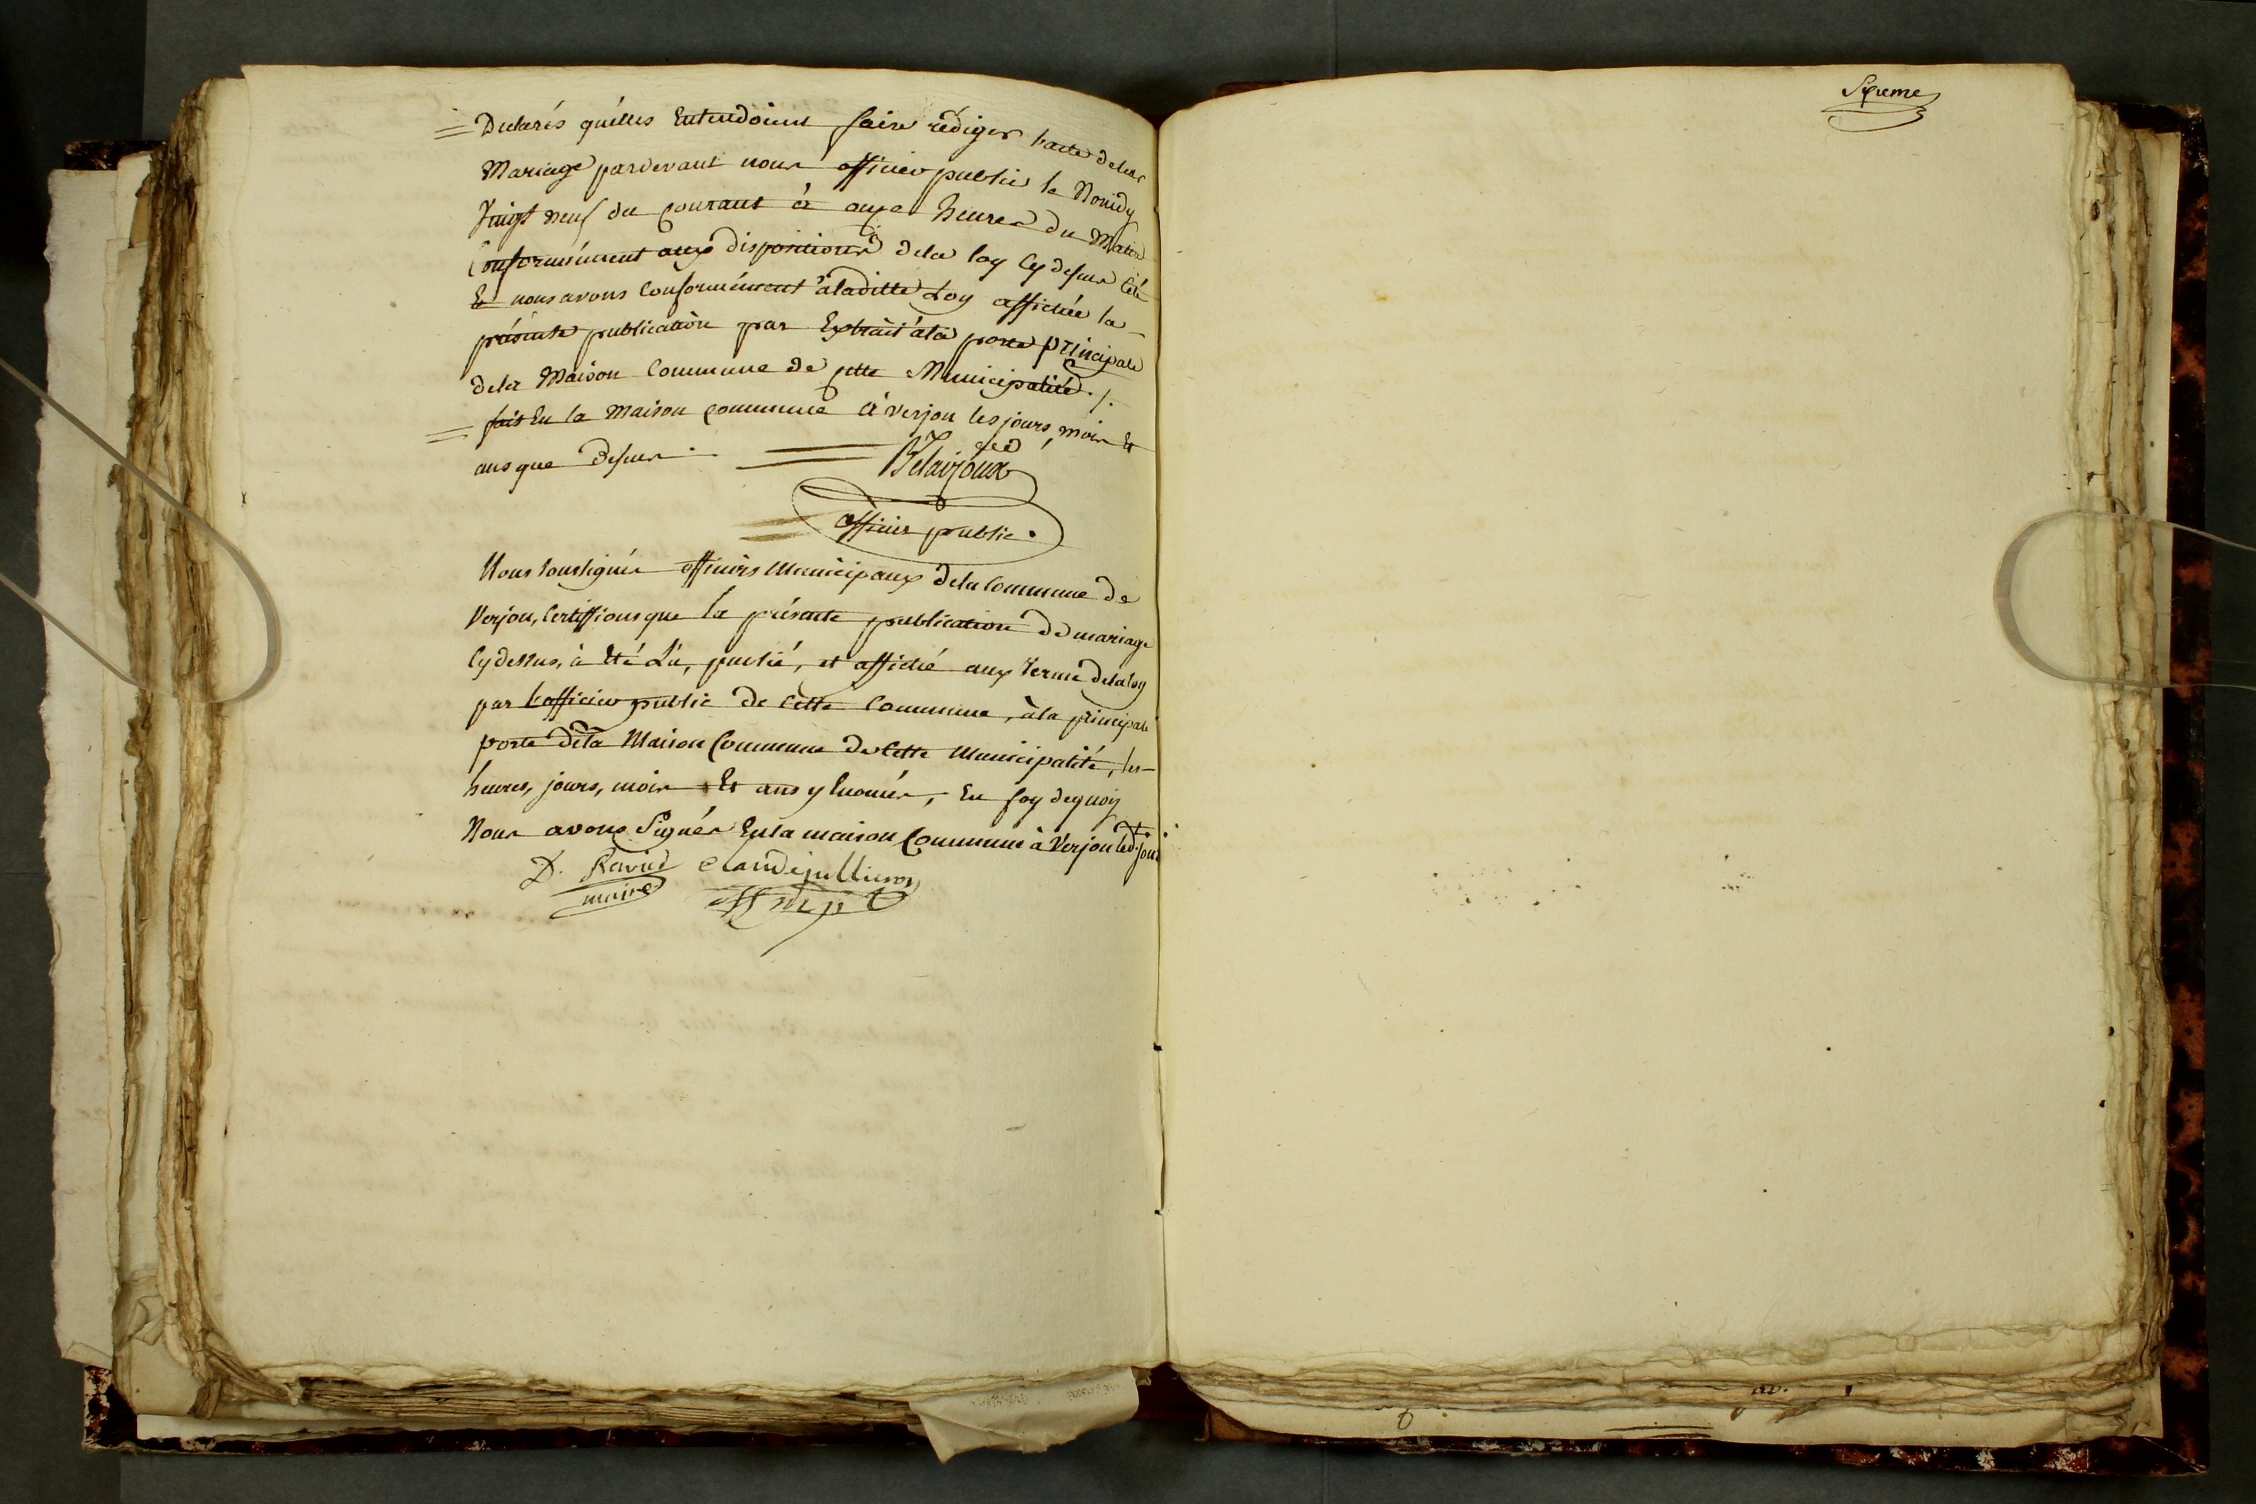 Sixieme
= Declarés qu'elles Entendoient faire rédiger l'acte de leur
Mariage pardevant nous officier public le Nonidy
Vingt neuf du Courant à onze heures du Matin
Conformément aux dispositions dela loy Cy desus Cité
Et nous avons Conformément àladitte Loy affichée la
présente publication par Extrait àla porte principale
dela Maison Commune de cette Municipalité ./.
= fait En la Maison Commune à verjon les jours, mois Et
ans que desus
Belairoux
officier public.
Nous soussignés officiers Municipaux dela Commune de
Verjon, Certiffions que la présente publication de mariage
Cy dessus, à Eté Lu, publié, et affiché aux Terme dela loy
par l'officier public de Cette Commune, àla principale
porte dela Maison Commune de Cette Municipalité, les
heures, jours, mois Et ans y Enomés, En foy dequoy
Nous avons Signés En la maison Commune à Verjon led.t jour
D. Ravid Claude jullieron
maire off m p l